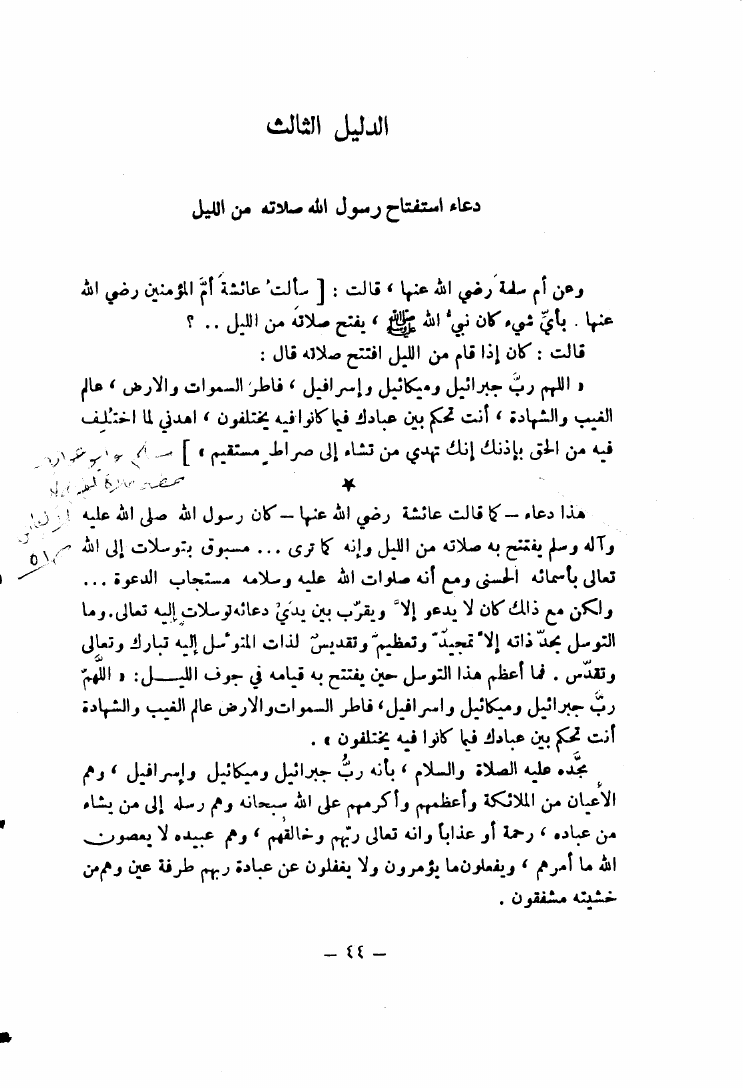 الدليل الثالث
دعاء استفتاح رسول الله صلاته من الليل
وعن أم سلمة رضي الله عنها ، قالت : [ سألت عائشة أمَّ المؤمنين رضي الله
عنها . بأيِّ شيء كان نبيُّ الله ﷺ ، يفتح صلاته من الليل .. ؟
قالت : كان إذا قام من الليل افتتح صلاته قال :
« اللهم ربَّ جبرائيل وميكائيل وإسرافيل ، فاطرَ السموات والارض ، عالم
الغيب والشهادة ، أنت تحكم بين عبادك فيما كانوا فيه يختلفون ، اهدني لما اختُلِف
فيه من الحق بإذنك إنك تهدي من تشاء إلى صراطٍ مستقيم » ]
★
هذا دعاء – كما قالت عائشة رضي الله عنها – كان رسول الله صلى الله عليه
وآله وسلم يفتتح به صلاته من الليل وإنه كما ترى ... مسبوق بتوسلات إلى الله
تعالى بأسمائه الحسنى ومع أنه صلوات الله عليه وسلامه مستجاب الدعوة ...
ولكن مع ذالك كان لا يدعو إلاَّ ويقرّب بين يديْ دعائه توسلات إليه تعالى. وما
التوسل بحدّ ذاته إلاَّ تمجيدٌ وتعظيمٌ وتقديسٌ لذات المتوسَّل إليه تبارك وتعالى
وتقدّس . فما أعظم هذا التوسل حين يفتتح به قيامه في جوف الليـــل: « اللَّهمّ
ربَّ جبرائيل وميكائيل واسرافيل، فاطر السموات والارض عالم الغيب والشهادة
أنت تحكم بين عبادك فيما كانوا فيه يختلفون » .
مجَّده عليه الصلاة والسلام ، بأنه ربُّ جبرائيل وميكائيل وإسرافيل ، وهم
الأعيان من الملائكة وأعظمهم وأكرمهم على الله سبحانه وهم رسله إلى من يشاء
من عباده ، رحمة أو عذاباً وانه تعالى ربّهم وخالقهم ، وهم عبيده لا يعصون
الله ما أمرهم ، ويفعلون ما يؤمرون ولا يغفلون عن عبادة ربهم طرفة عين وهم من
خشيته مشفقون .
– ٤٤ –